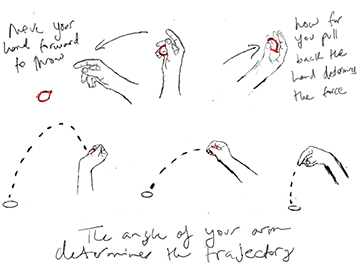 Move your
hand forward
to throw
how far
you pull
back the
hand determins
the force
The angle of your arm
determines the trajectory